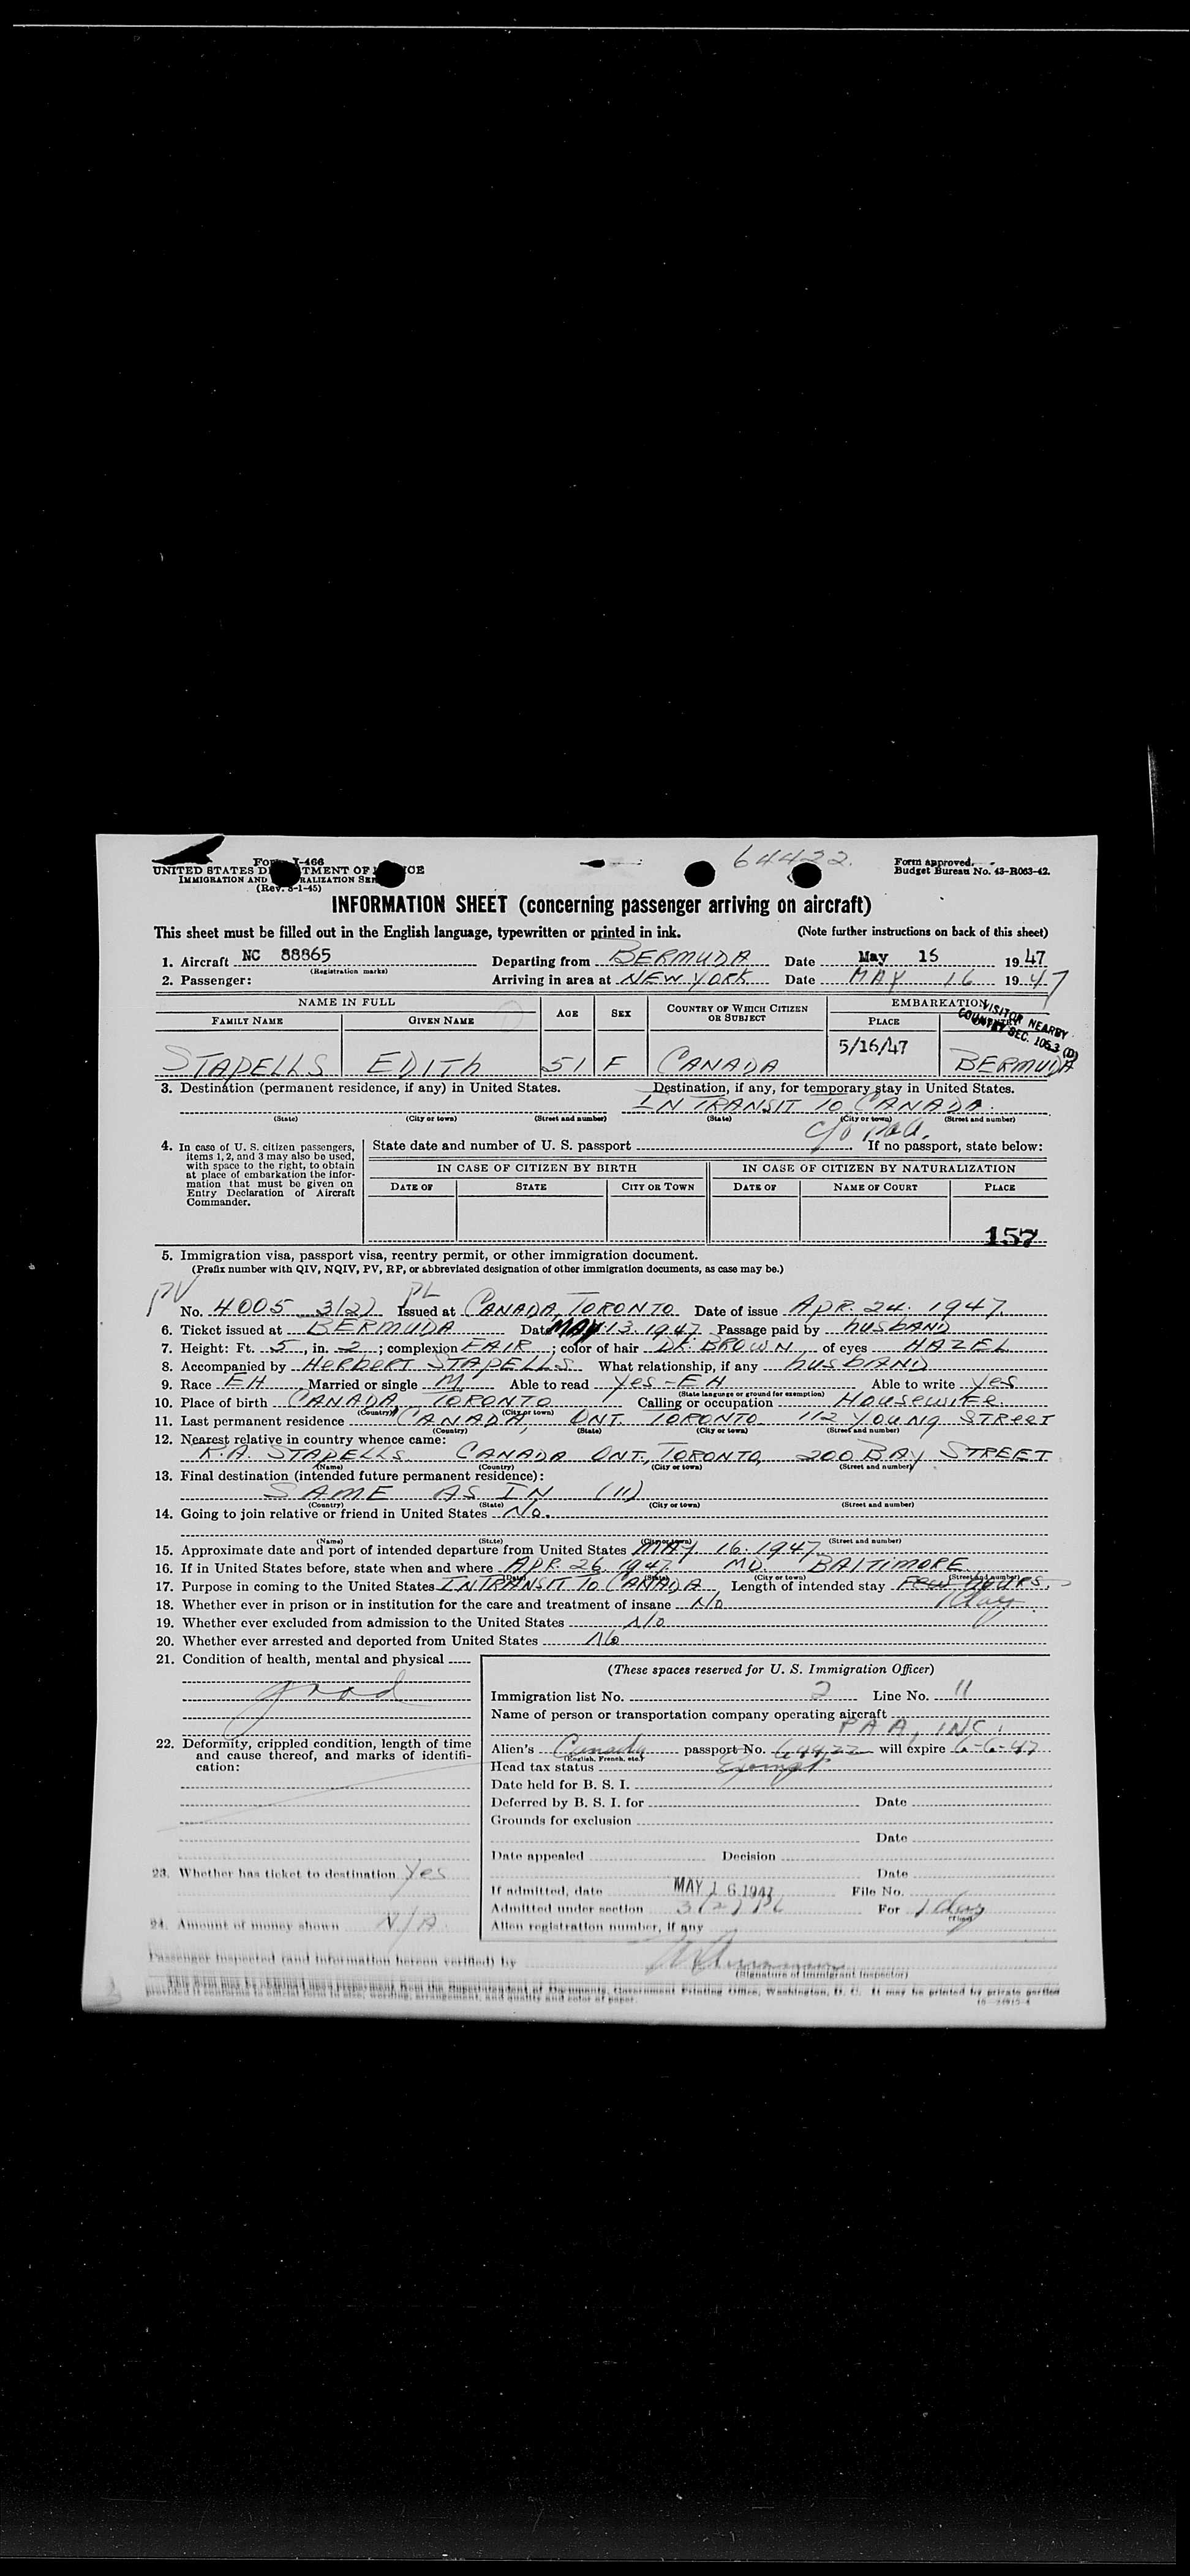 64422.
Form I-466
UNITED STATES D TMENT OF J ICE
IMMIGRATION AND RALIZATION SER
(Rev. 8-1-45)
Form approved.
Budget Bureau No. 43-R063-42.
INFORMATION SHEET (concerning passenger arriving on aircraft)
This sheet must be filled out in the English language, typewritten or printed in ink. (Note further instructions on back of this sheet)
1. Aircraft NC 88865 Departing from BERMUDA Date May 15 1947
(Registration marks)
2. Passenger: Arriving in area at NEW YORK Date MAY 16 1947
NAME IN FULL AGE SEX COUNTRY OF WHICH CITIZEN OR SUBJECT EMBARKATION
FAMILY NAME GIVEN NAME PLACE
VISITOR NEARBY
COUNTRY SEC. 105.3 (D)
5/16/47
STAPELLS EDITH 51 F CANADA BERMUDA
3. Destination (permanent residence, if any) in United States. Destination, if any, for temporary stay in United States.
IN TRANSIT TO CANADA.
(State) (City or town) (Street and number) (State) (City or town) (Street and number)
c/o PAA.
4. In case of U. S. citizen passengers, items 1, 2, and 3 may also be used, with space to the right, to obtain at place of embarkation the information that must be given on Entry Declaration of Aircraft Commander.
State date and number of U. S. passport If no passport, state below:
IN CASE OF CITIZEN BY BIRTH IN CASE OF CITIZEN BY NATURALIZATION
DATE OF STATE CITY OR TOWN DATE OF NAME OF COURT PLACE
157
5. Immigration visa, passport visa, reentry permit, or other immigration document.
(Prefix number with QIV, NQIV, PV, RP, or abbreviated designation of other immigration documents, as case may be.)
PV PL
No. 4005 3(2) Issued at CANADA, TORONTO Date of issue APR. 24. 1947
6. Ticket issued at BERMUDA Date MAY 13. 1947 Passage paid by husband
7. Height: Ft. 5, in. 2; complexion FAIR; color of hair DK. BROWN of eyes HAZEL
8. Accompanied by Herbert STAPELLS What relationship, if any husband
9. Race EH Married or single M Able to read yes - EH Able to write yes
(State language or ground for exemption)
10. Place of birth CANADA TORONTO Calling or occupation HOUSEWIFE
(Country) (City or town)
11. Last permanent residence CANADA, ONT. TORONTO 112 YOUNG STREET
(Country) (State) (City or town) (Street and number)
12. Nearest relative in country whence came:
R.A. STAPELLS CANADA ONT., TORONTO, 200 BAY STREET
(Name) (Country) (City or town) (Street and number)
13. Final destination (intended future permanent residence):
SAME AS IN (11)
(Country) (State) (City or town) (Street and number)
14. Going to join relative or friend in United States No.
(Name) (State) (City or town) (Street and number)
15. Approximate date and port of intended departure from United States MAY 16. 1947
16. If in United States before, state when and where APR. 26. 1947 MD. BALTIMORE
(Date) (State) (City or town) (Street and number)
17. Purpose in coming to the United States IN TRANSIT TO CANADA Length of intended stay Few hours.
1 day
18. Whether ever in prison or in institution for the care and treatment of insane No
19. Whether ever excluded from admission to the United States No
20. Whether ever arrested and deported from United States No
21. Condition of health, mental and physical
good
22. Deformity, crippled condition, length of time and cause thereof, and marks of identification:
23. Whether has ticket to destination Yes
24. Amount of money shown N/A
(These spaces reserved for U. S. Immigration Officer)
Immigration list No. 2 Line No. 11
Name of person or transportation company operating aircraft
PAA, INC.
Alien's Canada passport No. 64422 will expire 6-6-47
(English, French, etc.)
Head tax status Exempt
Date held for B. S. I.
Deferred by B. S. I. for Date
Grounds for exclusion
Date
Date appealed Decision
Date
If admitted, date MAY 16 1947 File No.
Admitted under section 3(2) PL For 1 day
(Time)
Alien registration number, if any
Passenger inspected (and information hereon verified) by
(Signature of Immigrant Inspector)
This form may be obtained upon prepayment from the Superintendent of Documents, Government Printing Office, Washington, D. C. It may be printed by private parties